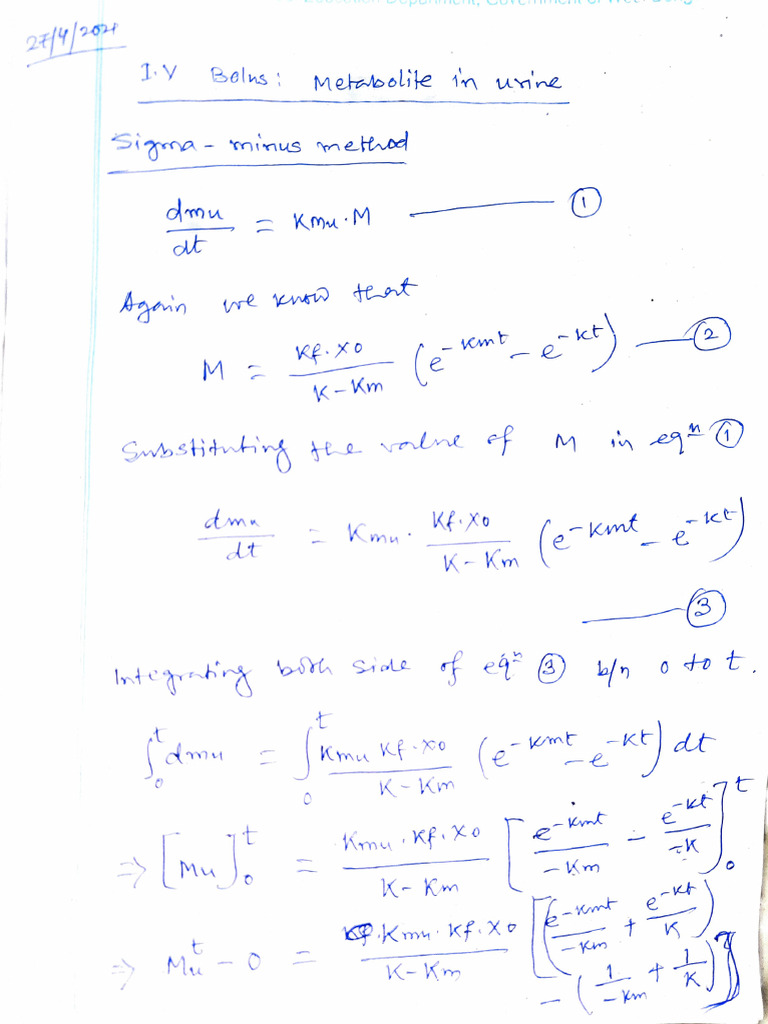 Education Department, Government of West Beng
27/4/2021
I.V Bolus: Metabolite in urine
Sigma-minus method
dmu/dt = Kmu.M ——— ①
Again we know that
M = Kf.X0/K-Km (e^-Kmt - e^-Kt) ——— ②
Substituting the value of M in eqn ①
dmu/dt = Kmu. Kf.X0/K-Km (e^-Kmt - e^-Kt)
——— ③
Integrating both side of eqn ③ b/n 0 to t.
∫₀^t dmu = ∫₀^t Kmu Kf.X0/K-Km (e^-Kmt - e^-Kt) dt
⇒ [Mu]₀^t = Kmu.Kf.X0/K-Km [e^-Kmt/-Km - e^-Kt/-K]₀^t
⇒ Mu^t - 0 = Kmu.Kf.X0/K-Km [(e^-Kmt/-Km + e^-Kt/K) - (1/-Km + 1/K)]